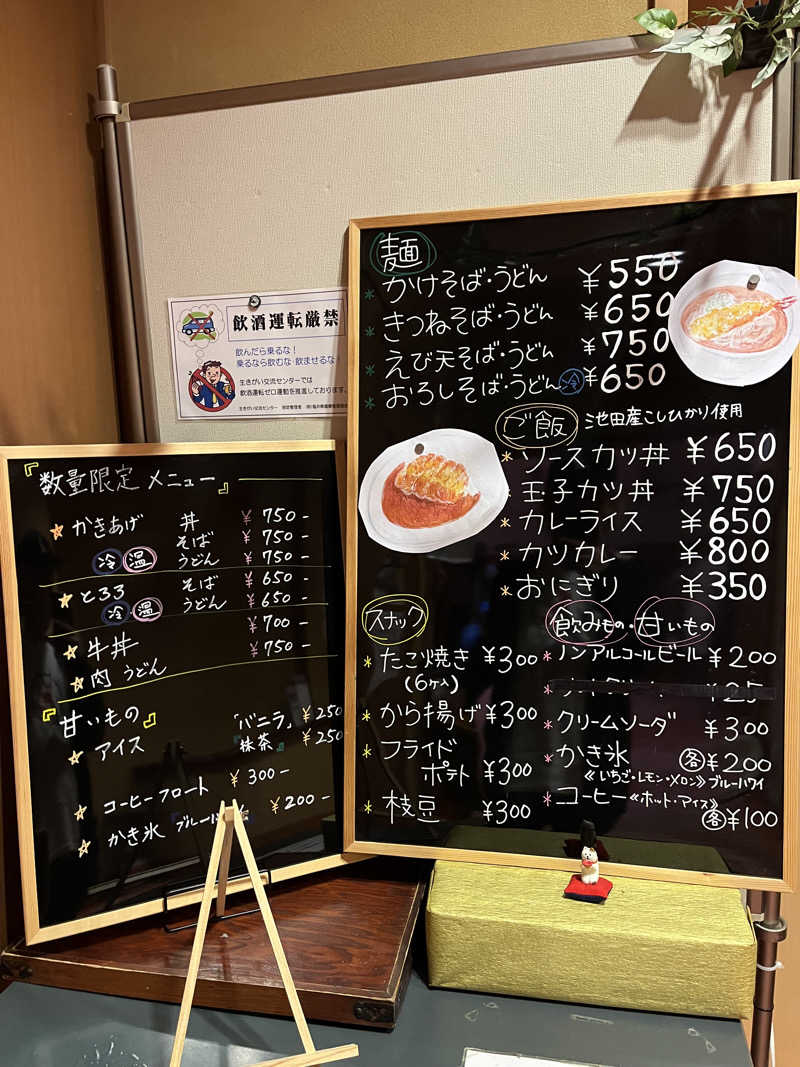 飲酒運転厳禁
飲んだら乗るな!
乗るなら飲むな・飲ませるな!
生きがい交流センターでは
飲酒運転ゼロ運動を推進しております。
『数量限定 メニュー』
かきあげ 丼 ¥750-
そば ¥750-
冷 温 うどん ¥750-
とろろ そば ¥650-
冷 温 うどん ¥650-
牛丼 ¥700-
肉うどん ¥750-
『甘いもの』
アイス 「バニラ」 ¥250
抹茶』 ¥250
コーヒーフロート ¥300-
かき氷 ブルー ¥200-
麺
かけそば・うどん ¥550
きつねそば・うどん ¥650
えび天そば・うどん ¥750
おろしそば・うどん 冷 ¥650
ご飯 池田産こしひかり使用
ソースカツ丼 ¥650
玉子カツ丼 ¥750
カレーライス ¥650
カツカレー ¥800
おにぎり ¥350
スナック
たこ焼き ¥300
(6ケ入)
から揚げ ¥300
フライド
ポテト ¥300
枝豆 ¥300
飲みもの・甘いもの
ノンアルコールビール ¥200
クリームソーダ ¥300
かき氷 各¥200
《いちご・レモン・メロン》ブルーハワイ
コーヒー《ホット・アイス》
各¥100